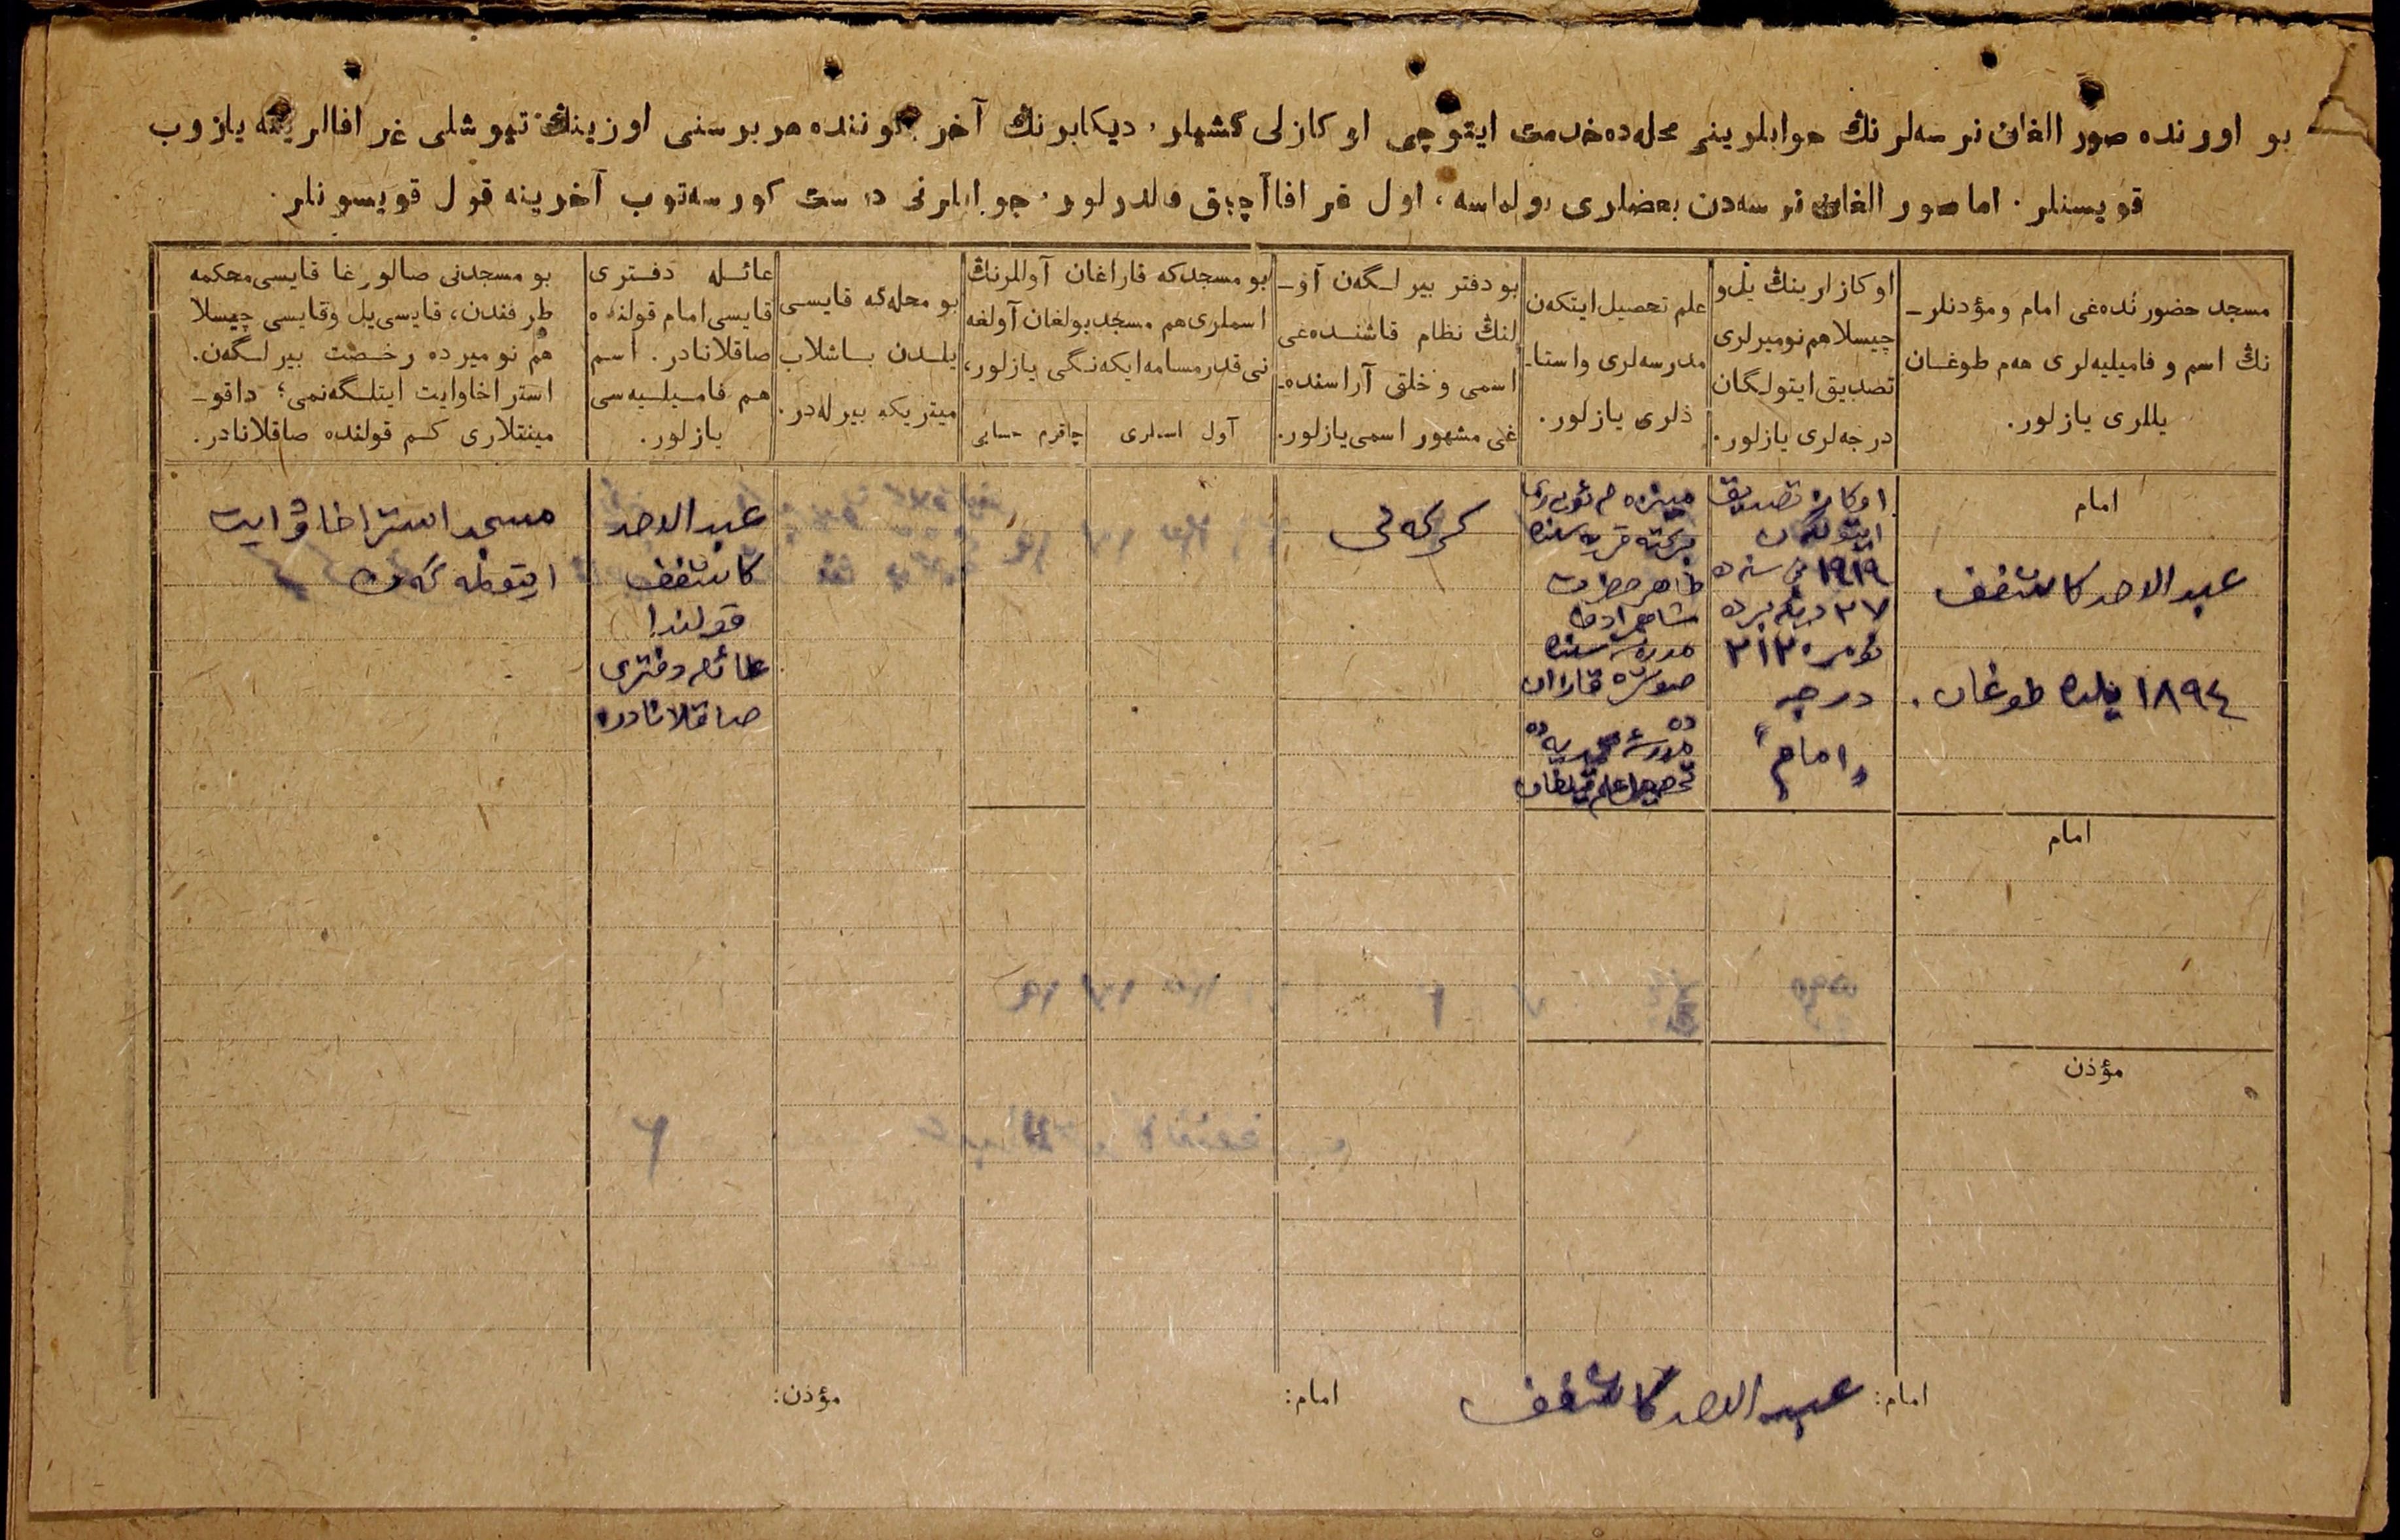 بو اورنده صورالغان نرسه‌لرنڭ جوابلرینی محله‌ده خدمت ایتوچی اوکازلی کشیلر، دیکابرنڭ آخر کوننده هر برسنی اوزینڭ تیوشلی غرافالرینه یازوب
قویسنلر. اما صورالغان نرسه‌دن بعضلری بولماسه، اول غرافا آچیق قالدرلور، جوابلرنی درست کورسه‌توب آخرینه قول قویسونلر.
مسجد حضورنده‌غی امام ومؤذنلر-
نڭ اسم و فامیلیه‌لری هم طوغان
یللری یازلور.
اوکازلرینڭ یل و
چیسلا هم نومیرلری
تصدیق ایتولگان
درجه‌لری یازلور.
علم تحصیل ایتکه‌ن
مدرسه‌لری واستا-
ذلری یازلور.
بو دفتر بیرلگه‌ن آو-
لنڭ نظام قاشنده‌غی
اسمی و خلق آراسنده-
غی مشهور اسمی یازلور.
بو مسجدکه قاراغان آوللرنڭ
اسملری هم مسجد بولغان آولغه
نی قدر مسافه ایکه‌نگی یازلور،
آول اسملری
چاقرم حسابی
بو محله‌گه قایسی
یلدن باشلاب
میتریکه بیرله‌در.
عائله دفتری
قایسی امام قولنده
صاقلانادر. اسم
هم فامیلیه‌سی
یازلور.
بو مسجدنی صالورغا قایسی محکمه
طرفندن، قایسی یل وقایسی چیسلا
هم نومیرده رخصت بیرلگه‌ن.
استراخاوایت ایتلگه‌نمی؛ داقو-
مینتلاری کم قولنده صاقلانادر.
امام
عبد الاحد کاشفف
١٨٩٤ یلده طوغان.
اوکاز تصدیق
ایتولگان
١٩١٩ نچی سنه‌ده
٢٧ دیکابرده
نومره ٢١٢
درجه
«امام»
قریه‌سنده
طاهر حضرت
مدرسه‌سنده
صوڭره قازان
ده
مدرسه محمدیه ده
تحصیل علم قیلغان
عبد الاحد
کاشفف
قولندا
عائله دفتری
صاقلانادر
مسجد استراخاوایت
ایتولمه‌گه‌ن
امام
مؤذن
امام: عبد الاحد کاشفف
امام:
مؤذن: